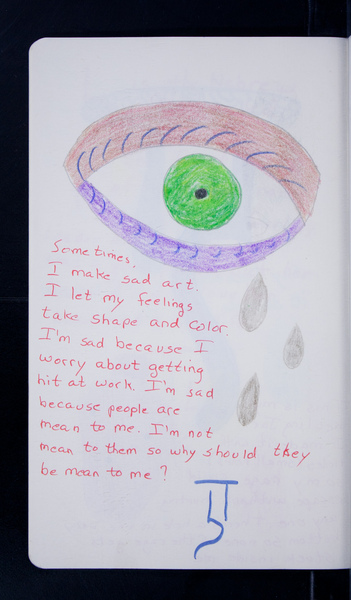 Sometimes,
I make sad art.
I let my feelings
take shape and color.
I'm sad because I
worry about getting
hit at work. I'm sad
because people are
mean to me. I'm not
mean to them so why should they
be mean to me?